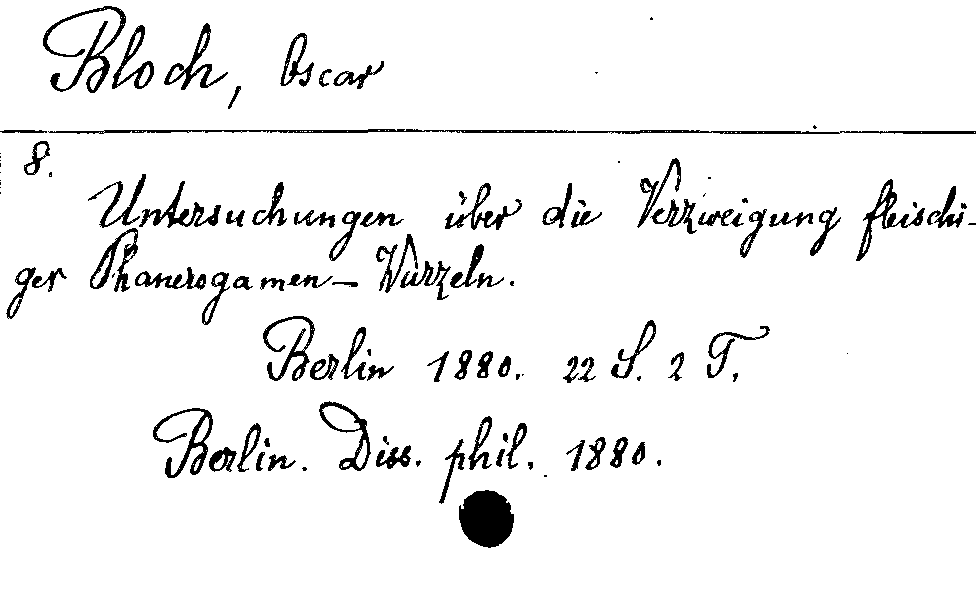 Bloch, Oscar
8.
Untersuchungen über die Verzweigung fleischi-
ger Phanerogamen-Wurzeln.
Berlin 1880. 22 S. 2 T.
Berlin. Diss. phil. 1880.